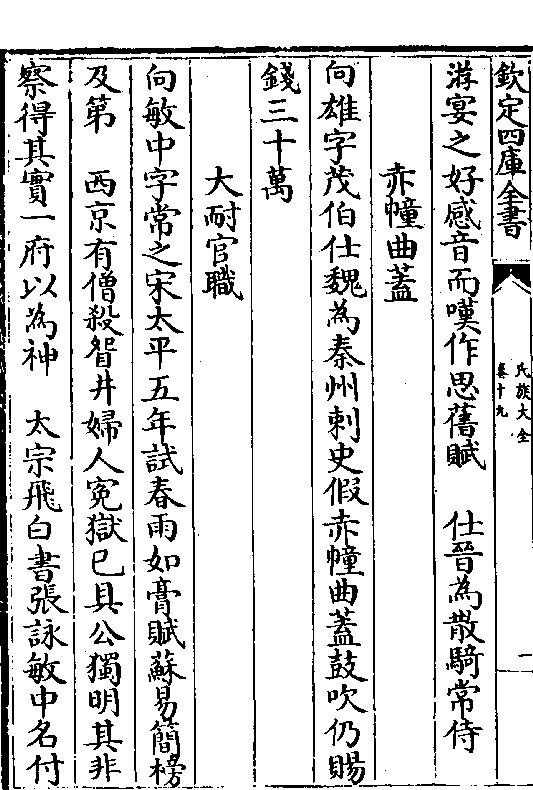 欽定四庫全書
氏族大全
卷十九
一
游宴之好感音而嘆作思舊賦　仕晉為散騎常侍
赤幢曲蓋
向雄字茂伯仕魏為秦州刺史假赤幢曲蓋鼓吹仍賜
錢三十萬
大耐官職
向敏中字常之宋太平五年試春雨如膏賦蘇易簡榜
及第　西京有僧殺眢井婦人寃獄已具公獨明其非
察得其實一府以為神　太宗飛白書張詠敏中名付